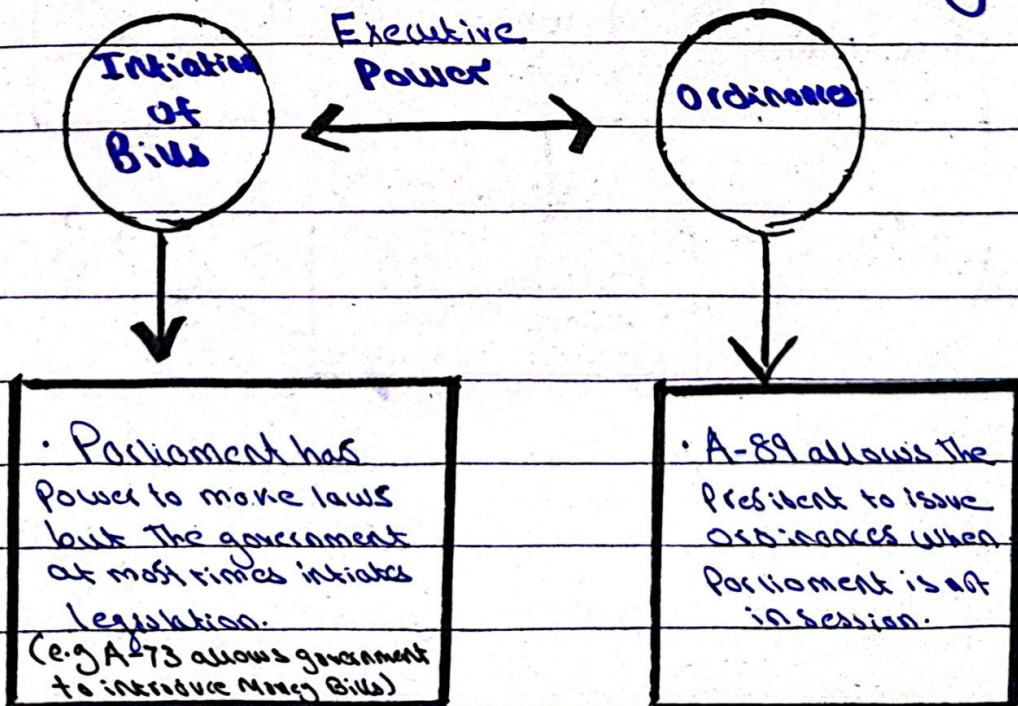 Intiation
of
Bills
Executive
Power
Ordinances
• Parliament has
Power to make laws
but the government
at most times intiates
legislation.
(e.g A-73 allows government
to introduce Money Bills)
• A-89 allows the
President to issue
Ordinances when
Parliament is not
in session.